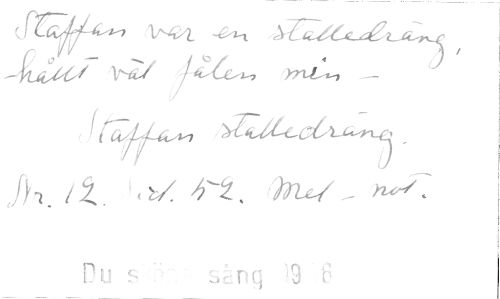 Staffan var en stalledräng,
hållt väl fålen min –
Staffan stalledräng.
Nr. 12. Sid. 52. Mel – not.
Du sång